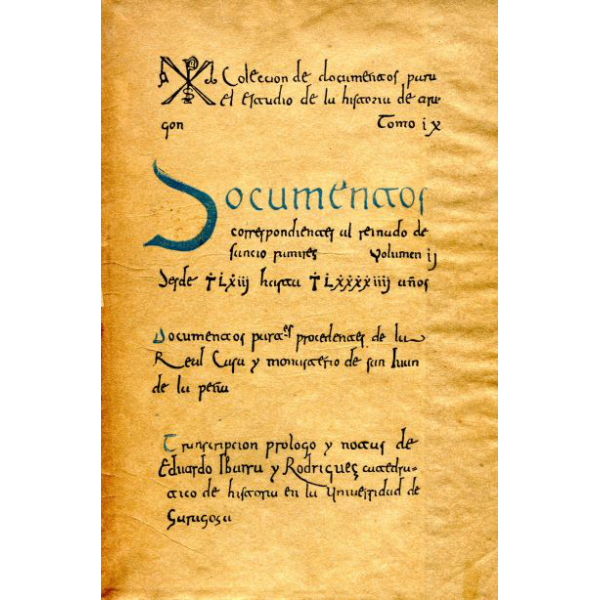 Coleccion de documentos para
el estudio de la historia de ara-
gon Tomo ix
Documentos
correspondientes al reinado de
sancio ramires Volumen ij
Desde ϮLXiij hasta ϮLXXXXiiij años
Documentos par.es procedentes de la
Real Casa y monasterio de san Juan
de la peña
Transcripcion prologo y notas de
Eduardo Ibarra y Rodriguez catedra-
tico de historia en la Universidad de
Zaragoza